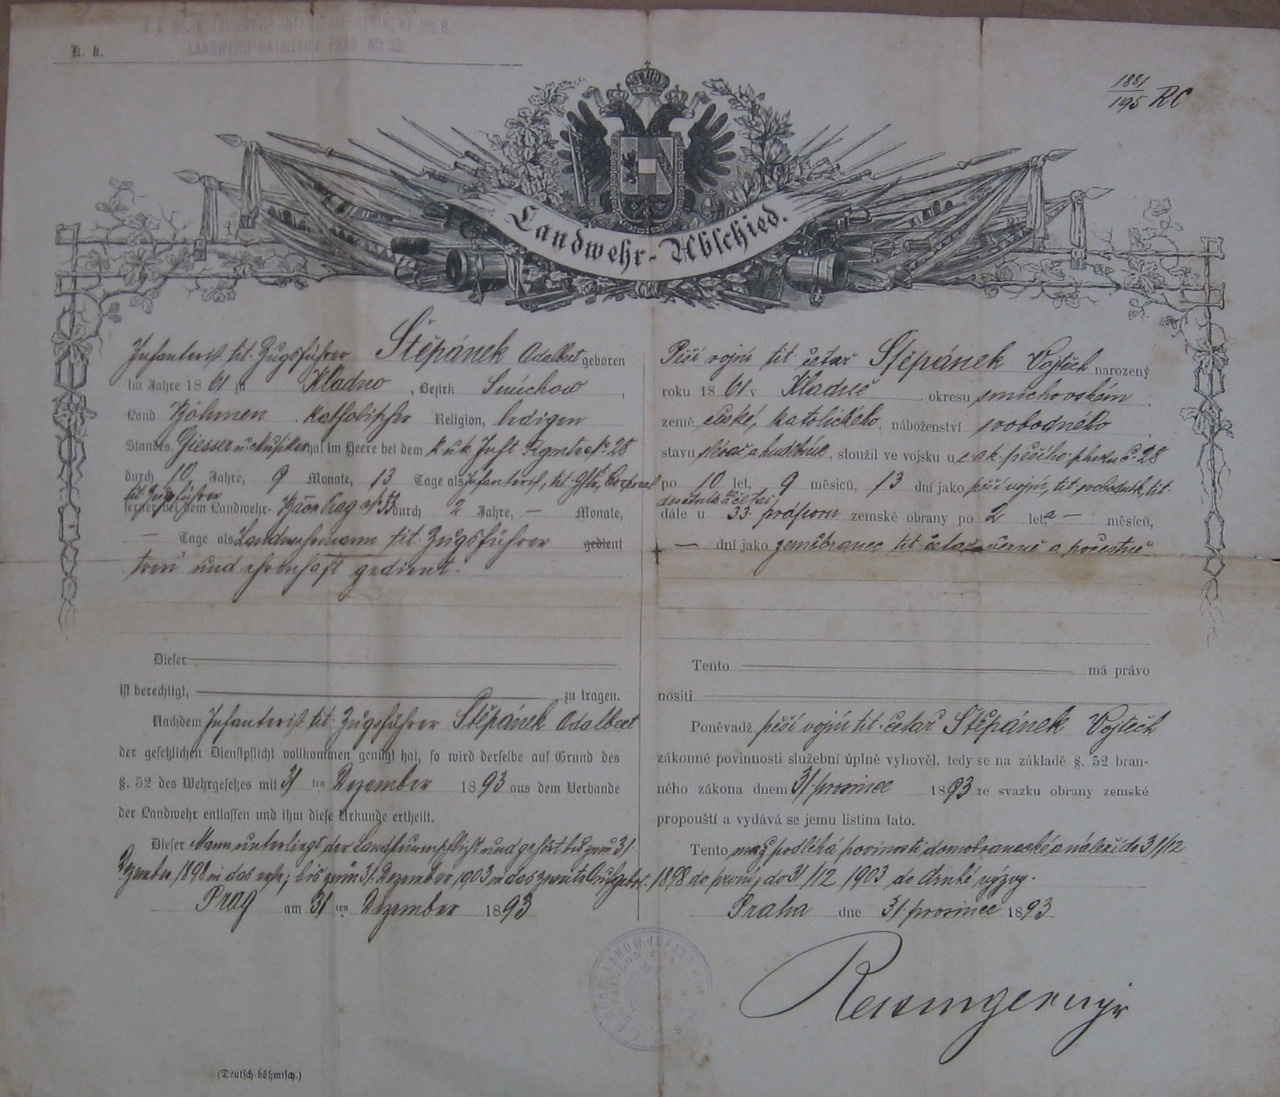 K. k.
K. K. BÖHM. LANDWEHR-INFANTERIE-REGIMENT No 8.
LANDWEHR-BATAILLON PRAG No 33.
1881
195 RC
Landwehr-Abschied.
Infanterist tit. Zugsführer Štěpánek Adalbert geboren
im Jahre 1861 in Kladno, Bezirk Smichow,
Land Böhmen, katholischer Religion, ledigen
Standes, Giesser u. Musiker hat im Heere bei dem k. u. k. Inft. Regmte No 28
durch 10 Jahre, 9 Monate, 13 Tage als Infanterist, tit. Gftr, Corporal
tit. Zugsführer
ferner bei dem Landwehr- Baon Prag No 33 durch 2 Jahre, — Monate,
— Tage als Landwehrmann tit. Zugsführer gedient
treu und ehrenhaft gedient.
Dieser
ist berechtigt, zu tragen.
Nachdem Infanterist tit. Zugsführer Štěpánek Adalbert
der gesetzlichen Dienstpflicht vollkommen genügt hat, so wird derselbe auf Grund des
§. 52 des Wehrgesetzes mit 31 ten Dezember 1893 aus dem Verbande
der Landwehr entlassen und ihm diese Urkunde ertheilt.
Dieser Mann unterliegt der Landsturmpflicht und gehört bis zum 31
Dezember 1898 in das erste; bis zum 31. Dezember 1903 in das zweite Aufgebot.
Prag am 31 ten Dezember 1893
Pěší vojín tit. četař Štěpánek Vojtěch narozený
roku 1861 v Kladně, okresu smichovském
země české, katolického náboženství svobodného
stavu slévač a hudebník, sloužil ve vojsku u c. a k. pěšího pluku č. 28
po 10 let, 9 měsíců, 13 dní jako pěší vojín, tit. svobodník, tit.
desátník a četař
dále u 33. praporu zemské obrany po 2 leta — měsíců,
— dní jako zeměbranec tit. četař věrně a počestně
Tento má právo
nositi
Poněvadž pěší vojín tit. četař Štěpánek Vojtěch
zákonné povinnosti služební úplně vyhověl, tedy se na základě §. 52 bran-
ného zákona dnem 31 prosince 1893 ze svazku obrany zemské
propouští a vydává se jemu listina tato.
Tento muž podléhá povinnosti domobranecké a náleží do 31/12
1898 do první; do 31/12 1903 do druhé výzvy.
Praha dne 31 prosince 1893
(Deutsch-böhmisch.)